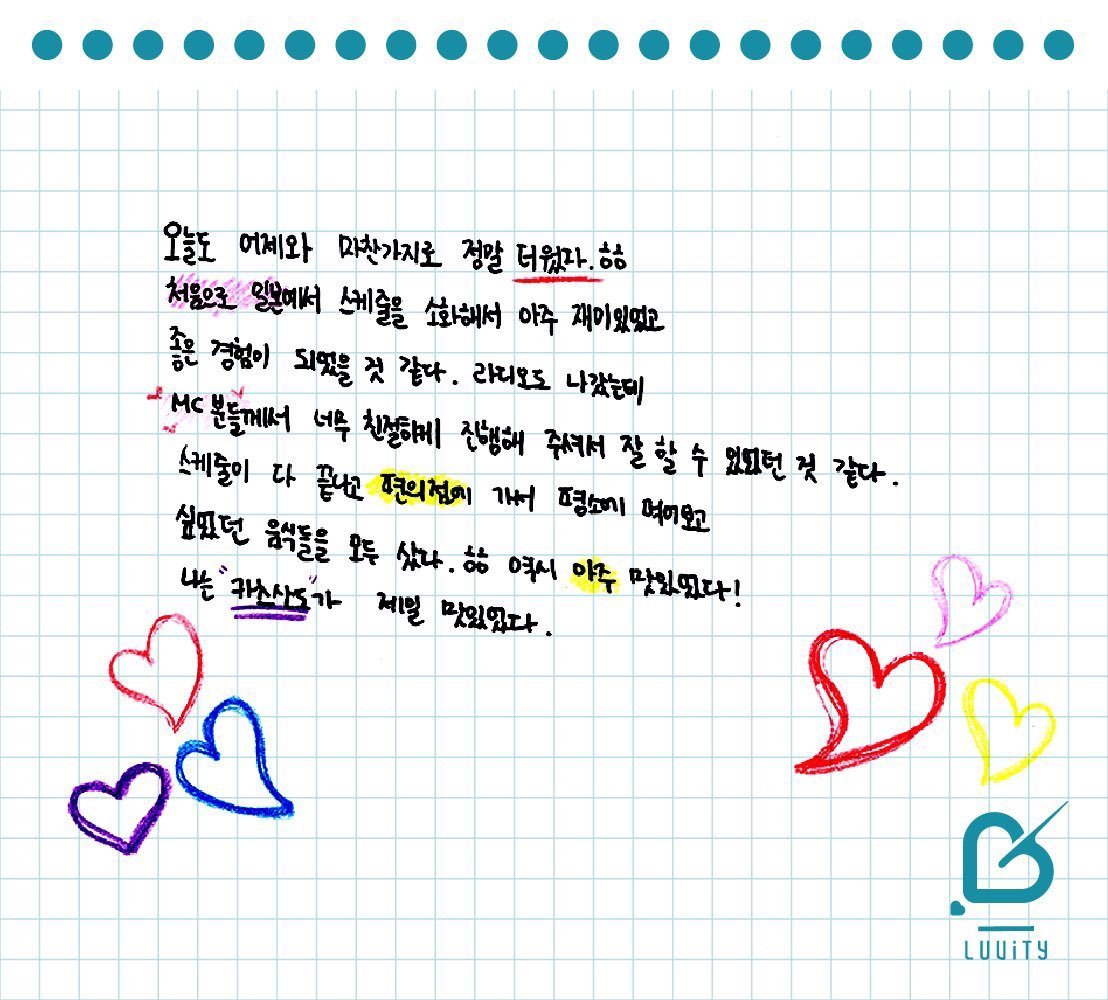 오늘도 어제와 마찬가지로 정말 더웠다.ㅎㅎ
처음으로 일본에서 스케줄을 소화해서 아주 재미있었고
좋은 경험이 되었을 것 같다. 라디오도 나갔는데
MC분들께서 너무 친절하게 진행해 주셔서 잘 할 수 있었던 것 같다.
스케줄이 다 끝나고 편의점에 가서 평소에 먹어보고
싶었던 음식들을 모두 샀다.ㅎㅎ 역시 아주 맛있었다!
나는 "카츠산도"가 제일 맛있었다.
LUUiTY